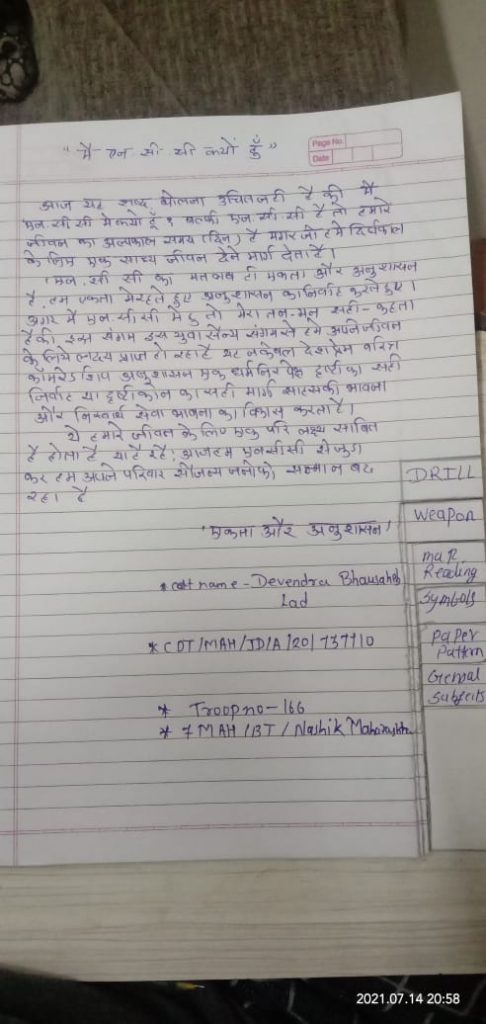 "मै एन सी सी क्यों हूँ"
Page No.
Date
आज यह शब्द बोलना उचित नही है की मैं
एन.सी.सी मे क्यों हूँ? बल्की एन.सी.सी है तो हमारे
जीवन का अल्पकाल समय (दिन) है मगर जो हमे दिर्घकाल
के लिए एक साध्य जीवन देने मार्ग देता है।
'एन. सी सी का मतलब ही एकता और अनुशासन
है, हम एकता मे रहते हुए अनुशासन का निर्वाह करते हुए।
अगर मै एन.सी.सी मे हु तो मेरा तन-मन यही-कहता
है की इस संगम इस युवा सैन्य संगमसे हमे अपने जीवन
के लिये लक्ष्य प्राप्त हो रहा है यह न केवल देशप्रेम चरित्र
कॉमरेड शिप अनुशासन एक धर्मनिरपेक्ष दृष्टी का सही
निर्वाह या दृष्टीकोन का सही मार्ग साहसकी भावना
और निस्वार्थ सेवा भावना का विकास करता है।
ये हमारे जीवन के लिए एक परि लक्ष्य साबित
है होता है या है रहे; आज हम एनसीसी से जुड
कर हम अपने परिवार सौजन्य जनोको सम्मान बढ
रहा है
DRILL
Weapon
'एकता और अनुशासन'
map
Reading
* cdt name - Devendra Bhausaheb
Lad
Symbols
* CDT/MAH/JD/A/20/737710
paper
Pattern
Genral
Subjects
* Troop no - 166
* 7 MAH/BT/Nashik Maharashtra
2021.07.14 20:58